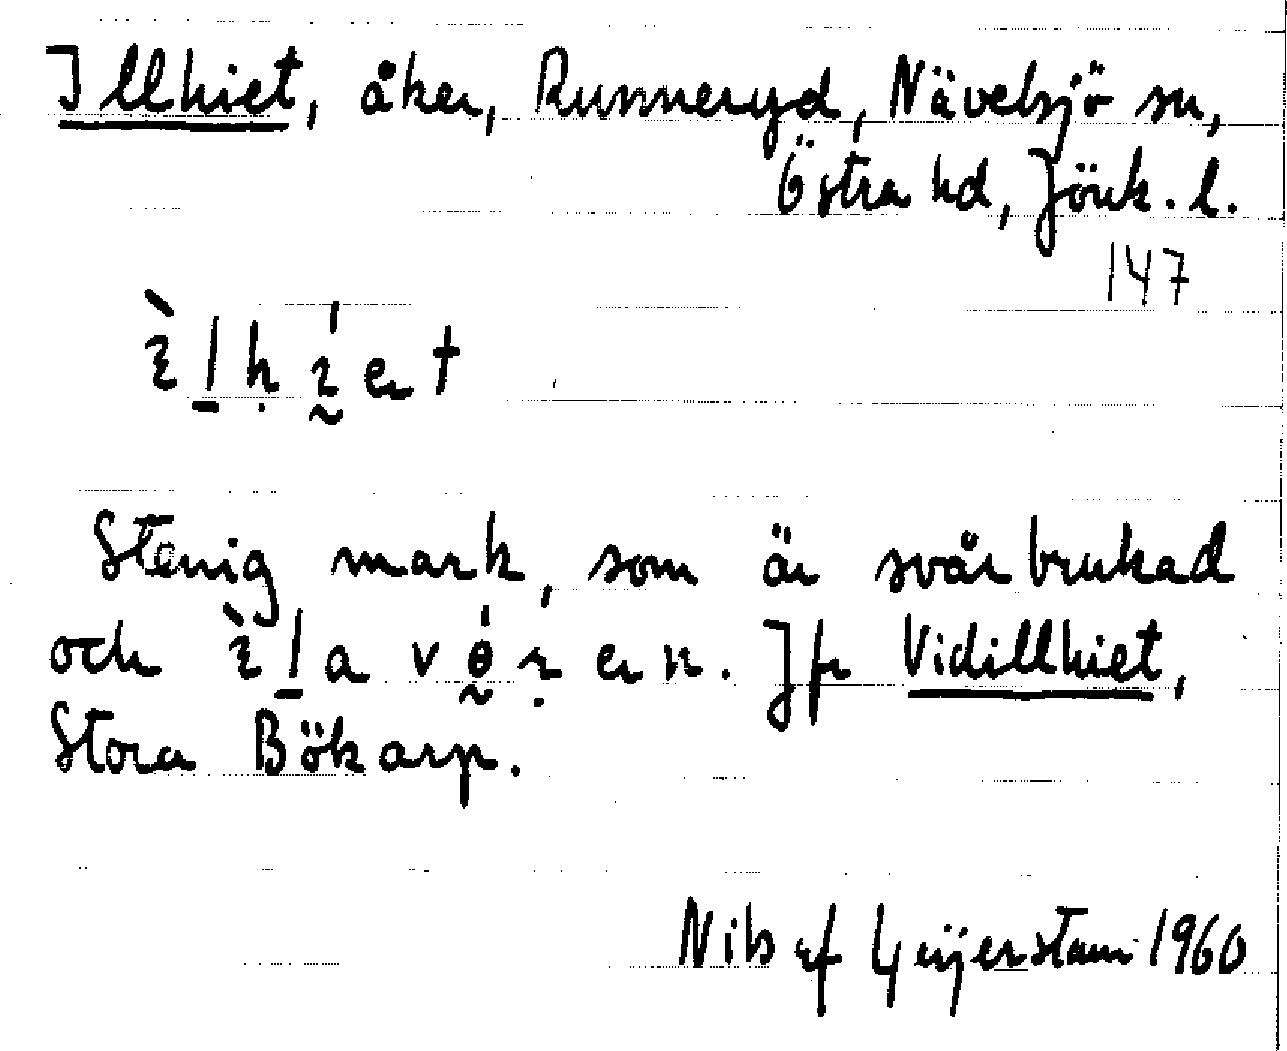 Illhiet, åker, Runneryd, Nävelsjö sn,
Östra hd, Jönk. l.
147
Stenig mark, som är svårbrukad
och
Jfr Vidillhiet,
Stora Bökarp.
Nils af Geijerstam 1960